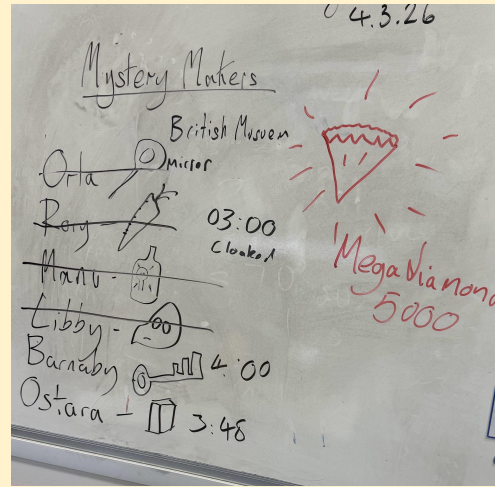 4.3.26
Mystery Makers
British Musuem
Orla
Mirror
Rory -
03:00
Cloaked
Manu -
Libby -
Barnaby
4:00
Ostara -
3:48
MegaDiamond
5000